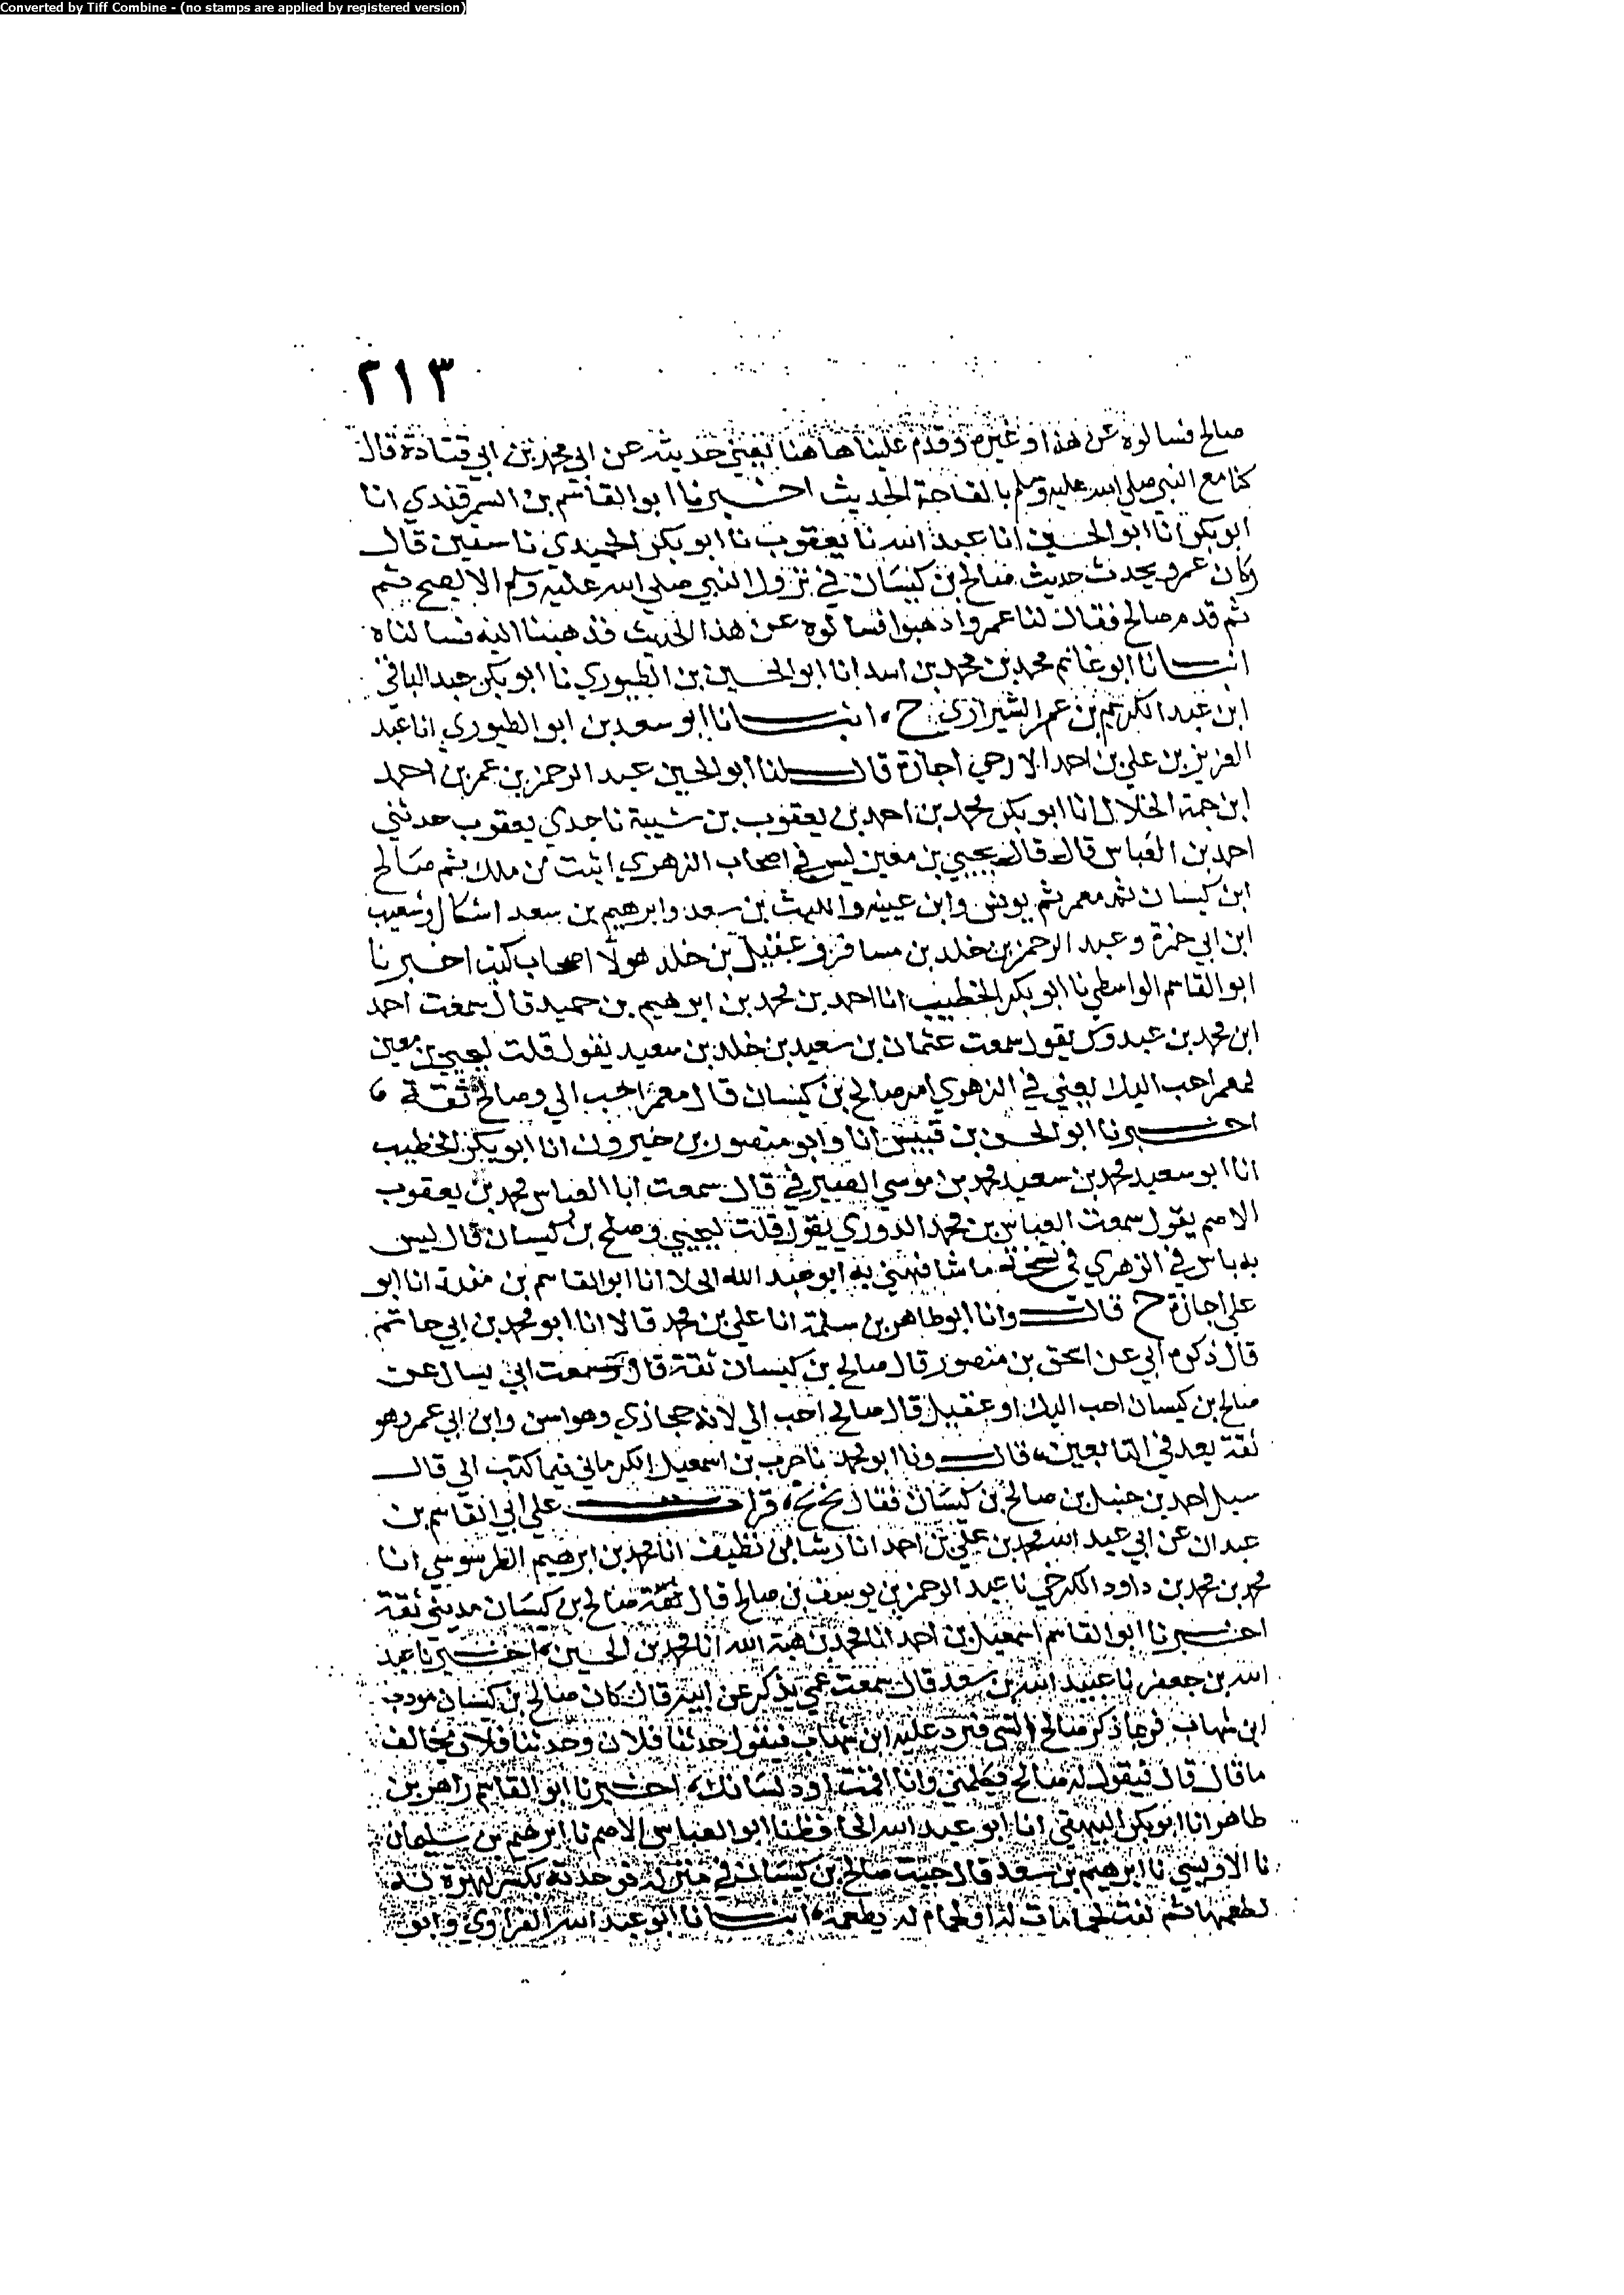 Converted by Tiff Combine - (no stamps are applied by registered version)
٢١٣
صالح فسالوه عن هذا وغيره وقدم علينا هاهنا يعني حديثه عن ابي محمد بن ابي قتادة قال
كنا مع النبي صلى الله عليه وسلم بالفاحة الحديث اخبرنا ابو القاسم بن السمرقندي انا
ابو بكر انا ابو الحسين انا عبد الله نا يعقوب نا ابو بكر الحميدي نا سفين قال
وكان عمرو يحدث حديث صالح بن كيسان في نزول النبي صلى الله عليه وسلم الا
ثم قدم صالح فقال لنا عمرو اذهبوا فسالوه عن هذا الحديث فذهبنا اليه فسالناه
انبانا ابو غانم محمد بن محمد بن اسد انا ابو الحسين بن الطيوري نا ابو بكر عبد الباقي
ابن عبد الكريم بن عمر الشيرازي ح، انبانا ابو سعد بن ابو الطيوري انا عبد
العزيز بن علي بن احمد الارجي اجازة قال لنا ابو الحسين عبد الرحمن بن عمر بن احمد
ابن حمة الخلال انا ابو بكر محمد بن احمد بن يعقوب بن شيبة نا جدي يعقوب حدثني
احمد بن العباس قال قال يحيى بن معين ليس في اصحاب الزهري اثبت من ملك ثم صالح
ابن كيسان ثم معمر ثم يونس وابن عيينه والليث بن سعد وابرهيم بن سعد اشكال وشعيب
ابن ابي حمزة وعبد الرحمن بن خلد بن مسافر وعقيل بن خلد هولا اصحاب كتب اخبرنا
ابو القاسم الواسطي نا ابو بكر الخطيب انا احمد بن محمد بن ابرهيم بن حميد قال سمعت احمد
ابن محمد بن عبدوس يقول سمعت عثمان بن سعيد بن خلد بن سعيد يقول قلت ليحيى بن معين
لمعمر احب اليك يعني في الزهري ام صالح بن كيسان قال معمر احب الي وصالح ثقة،
اخبرنا ابو الحسن بن قبيس انا وابو منصور بن خيرون انا ابو بكر الخطيب
انا ابو سعيد محمد بن سعيد محمد بن موسى الصيرفي قال سمعت ابا العباس محمد بن يعقوب
الاصم يقول سمعت العباس بن محمد الدوري يقول قلت ليحيى وصلح بن كيسان قال ليس
به باس في الزهري في نسخة ما شافهني به ابو عبد الله الخلا انا ابو القاسم بن مندة انا ابو
علي اجازة ح قال وانا ابو طاهر بن سلمة انا علي بن محمد قالا انا ابو محمد بن ابي حاتم
قال ذكره ابي عن اسحق بن منصور قال صالح بن كيسان ثقة قال وسمعت ابي يسال عن
صالح بن كيسان احب اليك او عقيل قال صالح احب الي لانه حجازي وهو اسن وابن ابي عمر وهو
ثقة يعد في التابعين، قال ونا ابو محمد نا حرب بن اسمعيل الكرماني فيما كتب الي قال
سيل احمد بن حنبل بن صالح بن كيسان فقال بخ بخ، قرات علي ابي القاسم بن
عبدان عن ابي عبد الله محمد بن علي بن احمد انا رشا بن نظيف انا محمد بن ابرهيم الطرسوسي انا
محمد بن محمد بن داود الكرجي نا عبد الرحمن بن يوسف بن صالح قال ثقة صالح بن كيسان مديني ثقة
اخبرنا ابو القاسم اسمعيل بن احمد انا محمد بن هبة الله انا محمد بن الحسين، اخبرنا عبد
الله بن جعفر نا عبيد الله بن سعد قال سمعت عمي يذكر عن ابيه قال كان صالح بن كيسان مودب
ابن شهاب فربما ذكر صالح الشي فيرد عليه ابن شهاب فيقول حدثنا فلان وحدثنا فلان بخالف
ما قال قال فيقول له صالح تكلمني وانا اقمت اود لسانك، اخبرنا ابو القاسم زاهر بن
طاهر انا ابو بكر البيهقي انا ابو عبد الله الحافظ نا ابو العباس الاصم نا ابرهيم بن سليمان
نا الاويسي نا ابرهيم بن سعد قال جيت صالح بن كيسان في منزله فوجدته يكسر لهرة له
لطعمها ثم لحمامات له او لحمام له يطعمه، انبانا ابو عبد الله الفراوي وابو